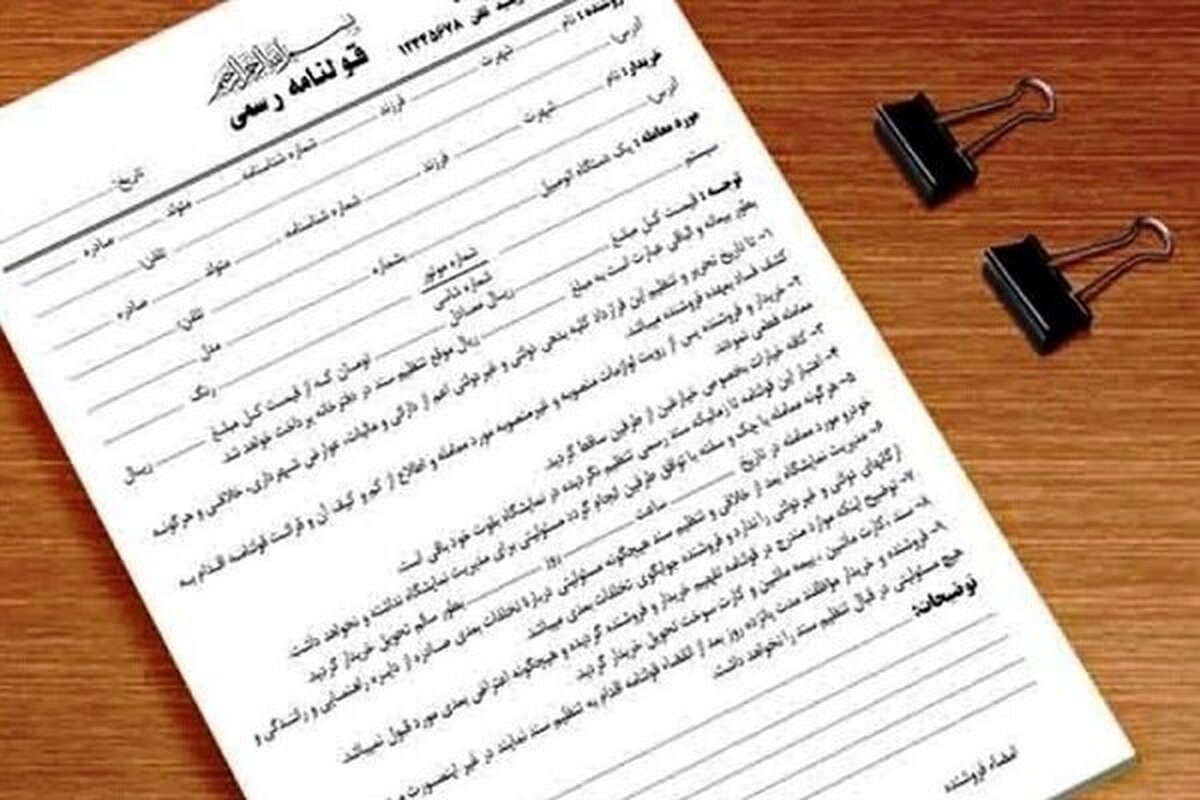 بسم الله الرحمن الرحیم
قولنامه رسمی
تلفن ۱۲۳۴۵۶۷۸
تاریخ:
فروشنده: نام شهرت فرزند شماره شناسنامه متولد صادره
آدرس: تلفن:
خریدار: نام شهرت فرزند شماره شناسنامه متولد صادره
آدرس: تلفن:
مورد معامله: یک دستگاه اتومبیل بشماره مدل
سیستم شماره موتور شماره شاسی رنگ
توجه: قیمت کل مبلغ ریال معادل تومان که از قیمت کل مبلغ ریال
بطور بیعانه و الباقی عبارت است به مبلغ ریال موقع تنظیم سند در دفترخانه پرداخت خواهد شد.
۱- تا تاریخ تحریر و تنظیم این قرارداد کلیه بدهی دولتی و غیردولتی اعم از دارائی و مالیات، عوارض شهرداری، خلافی و هرگونه
کشف فساد بعهده فروشنده میباشد.
۲- خریدار و فروشنده پس از رویت لوازمات منصوبه و غیرمنصوبه مورد معامله و اطلاع از کم و کیف آن و قرائت قولنامه اقدام به
معامله قطعی نمودند.
۳- کافه خیارات بخصوص خیارغبن از طرفین ساقط گردید.
۴- اعتبار این قولنامه تا زمانیکه سند رسمی تنظیم نگردیده در نمایشگاه بقوت خود باقی است.
۵- هرگونه معامله با چک و سفته با توافق طرفین انجام گردد مسئولیتی برای مدیریت نمایشگاه نداشته و نخواهد داشت.
خودرو مورد معامله در تاریخ ساعت روز بطور سالم تحویل خریدار گردید.
۶- مدیریت نمایشگاه بعد از خلافی و تنظیم سند هیچگونه مسئولیتی درباره تخلفات بعدی صادره از دایره راهنمایی و رانندگی و
ارگانهای دولتی و غیردولتی را ندارد و فروشنده جوابگوی تخلفات بعدی میباشد.
۷- توضیح اینکه موارد مندرج در قولنامه تفهیم خریدار و فروشنده گردیده و هیچگونه اعتراض بعدی مورد قبول نمیباشد.
۸- سند، کارت ماشین، بیمه ماشین و کارت سوخت تحویل خریدار گردید.
۹- فروشنده و خریدار موظفند مدت پانزده روز بعد از انقضاء قولنامه اقدام به تنظیم سند نمایند در غیر اینصورت
هیچ مسئولیتی در قبال تنظیم سند را نخواهد داشت.
توضیحات:
امضاء فروشنده